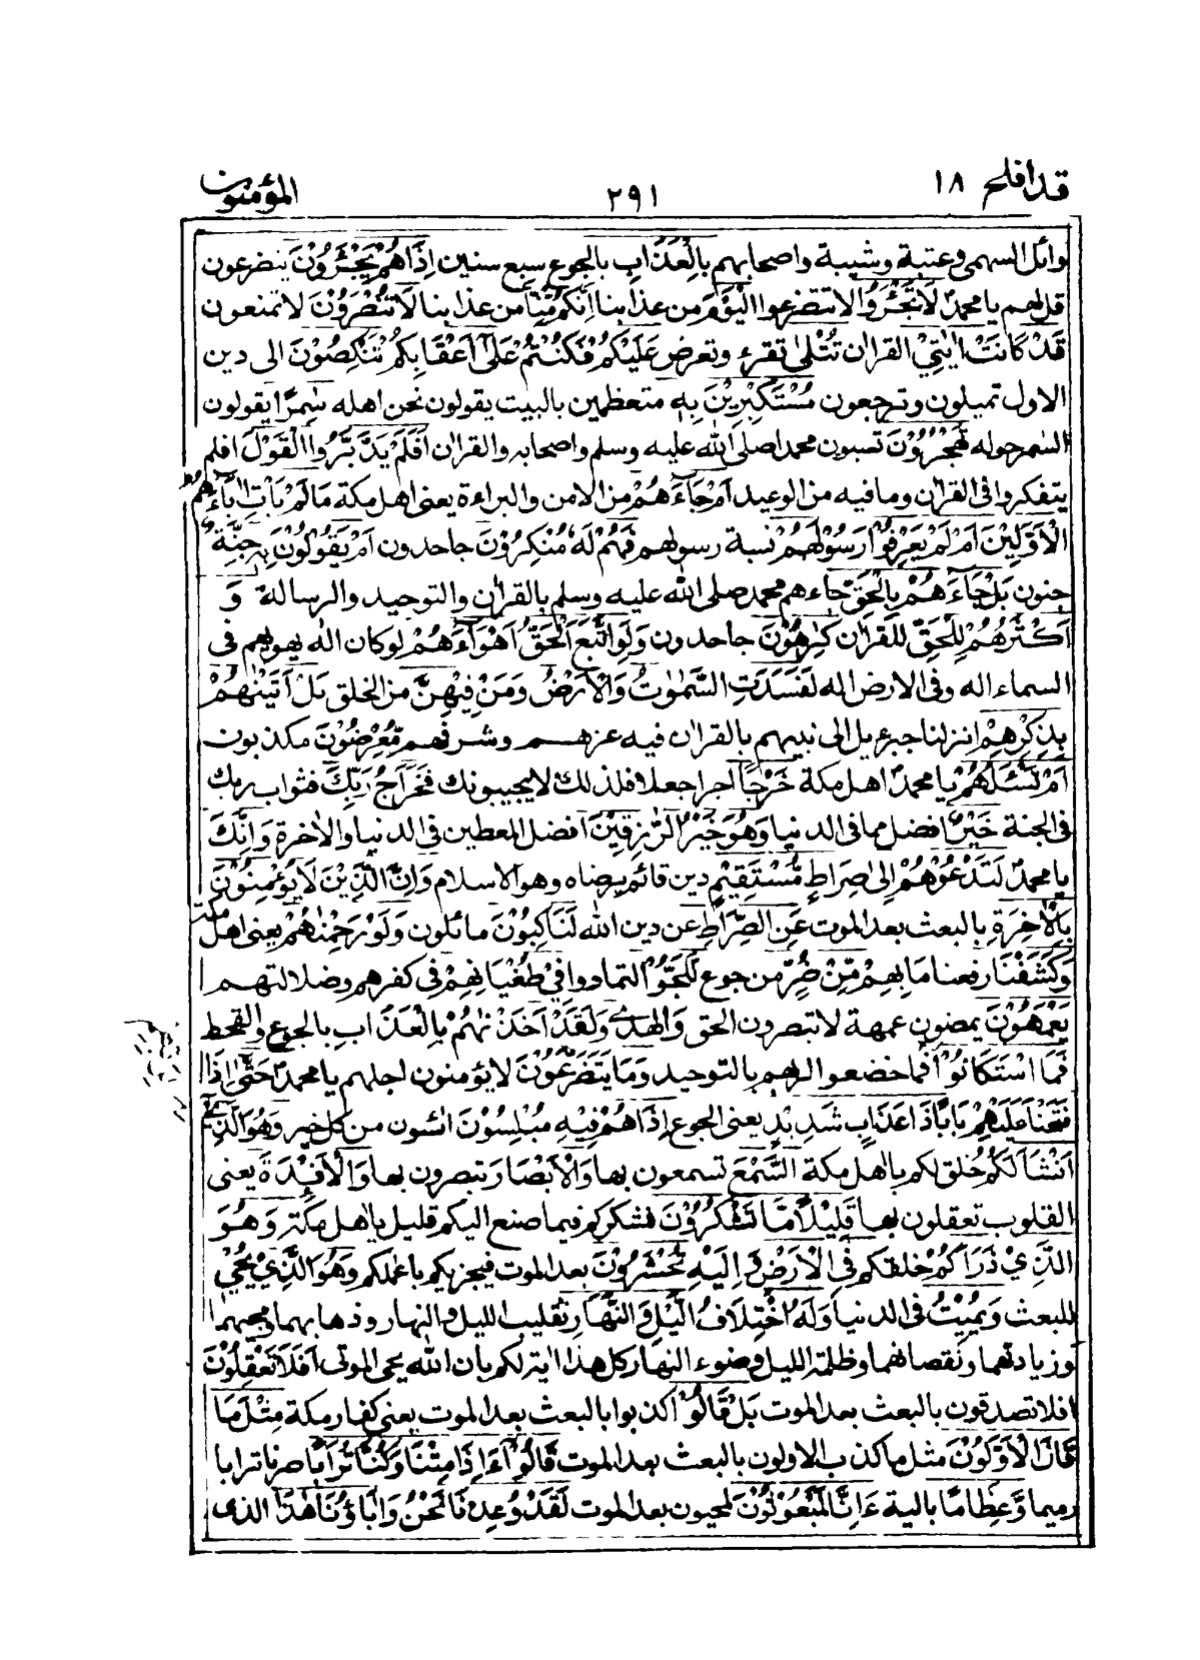 قد افلح ۱۸
۲۹۱
المؤمنون
وائل السهمى وعتبة وشيبة واصحابهم بِالْعَذَابِ بالجوع سبع سنين اِذَا هُمْ يَجْـَٔرُوْنَ يتضرعون
قل لهم يا محمدٌ لَا تَجْـَٔرُوا لا تتضرعوا الْيَوْمَ من عذابنا اِنَّكُمْ مِّنَّا من عذابنا لَا تُنْصَرُوْنَ لا تمنعون
قَدْ كَانَتْ اٰيٰتِيْ القراٰن تُتْلٰى تقرء وتعرض عَلَيْكُمْ فَكُنْتُمْ عَلٰٓى اَعْقَابِكُمْ تَنْكِصُوْنَ الى دين
الاول تميلون وترجعون مُسْتَكْبِرِيْنَ بِهٖ متعظمين بالبيت يقولون نحن اهله سٰمِرًا يقولون
السمر حوله تَهْجُرُوْنَ تسبون محمدا صلى الله عليه وسلم واصحابه والقراٰن اَفَلَمْ يَدَّبَّرُوا الْقَوْلَ افلم
يتفكروا فى القراٰن وما فيه من الوعيد اَمْ جَآءَهُمْ من الامن والبراءة يعنى اهل مكة مَا لَمْ يَاْتِ اٰبَآءَهُمُ
الْاَوَّلِيْنَ اَمْ لَمْ يَعْرِفُوْا رَسُوْلَهُمْ نسبة رسولهم فَهُمْ لَهٗ مُنْكِرُوْنَ جاحدون اَمْ يَقُوْلُوْنَ بِهٖ جِنَّةٌ
جنون بَلْ جَآءَهُمْ بِالْحَقِّ جاءهم محمد صلى الله عليه وسلم بالقراٰن والتوحيد والرسالة وَ
اَكْثَرُهُمْ لِلْحَقِّ للقراٰن كٰرِهُوْنَ جاحدون وَلَوِ اتَّبَعَ الْحَقُّ اَهْوَآءَهُمْ لوكان الله بهويهم فى
السماء اله وفى الارض اله لَفَسَدَتِ السَّمٰوٰتُ وَالْاَرْضُ وَمَنْ فِيْهِنَّ من الخلق بَلْ اَتَيْنٰهُمْ
بِذِكْرِهِمْ انزلنا جبرءيل الى نبيهم بالقراٰن فيه عزهم وشرفهم مُّعْرِضُوْنَ مكذبون
اَمْ تَسْـَٔلُهُمْ يا محمدٌ اهل مكة خَرْجًا اجرا جعلا فلذلك لا يجيبونك فَخَرَاجُ رَبِّكَ فثواب ربك
فى الجنة خَيْرٌ افضل مما فى الدنيا وَهُوَ خَيْرُ الرّٰزِقِيْنَ افضل المعطين فى الدنيا والاٰخرة وَاِنَّكَ
يا محمدٌ لَتَدْعُوْهُمْ اِلٰى صِرَاطٍ مُّسْتَقِيْمٍ دين قائم يرضاه وهو الاسلام وَاِنَّ الَّذِيْنَ لَا يُؤْمِنُوْنَ
بِالْاٰخِرَةِ بالبعث بعد الموت عَنِ الصِّرَاطِ عن دين الله لَنٰكِبُوْنَ مائلون وَلَوْ رَحِمْنٰهُمْ يعنى اهل مكة
وَكَشَفْنَا رفعنا مَا بِهِمْ مِّنْ ضُرٍّ من جوع لَّلَجُّوْا لتمادوا فِيْ طُغْيَانِهِمْ فى كفرهم وضلالتهم
يَعْمَهُوْنَ يمضون عمهة لا تبصرون الحق والهدى وَلَقَدْ اَخَذْنٰهُمْ بِالْعَذَابِ بالجوع والقحط
فَمَا اسْتَكَانُوْا فما خضعوا لربهم بالتوحيد وَمَا يَتَضَرَّعُوْنَ لا يؤمنون اجلهم يا محمدٌ حَتّٰى اِذَا
فَتَحْنَا عَلَيْهِمْ بَابًا ذَا عَذَابٍ شَدِيْدٍ يعنى الجوع اِذَا هُمْ فِيْهِ مُبْلِسُوْنَ اٰئسون من كل خير وَهُوَ الَّذِيْ
اَنْشَاَ لَكُمْ خلق لكم يااهل مكة السَّمْعَ تسمعون بها وَالْاَبْصَارَ تبصرون بها وَالْاَفْـِٕدَةَ يعنى
القلوب تعقلون بها قَلِيْلًا مَّا تَشْكُرُوْنَ فشكركم فيما صنع اليكم قليل يا اهل مكة وَهُوَ
الَّذِيْ ذَرَاَكُمْ خلقكم فِى الْاَرْضِ وَاِلَيْهِ تُحْشَرُوْنَ بعد الموت فيجزيكم باعمالكم وَهُوَ الَّذِيْ يُحْيٖ
للبعث وَيُمِيْتُ فى الدنيا وَلَهُ اخْتِلَافُ الَّيْلِ وَالنَّهَارِ تقليب الليل والنهار وذهابهما ومجيهما
وزيادتهما ونقصانهما وظلمة الليل وضوء النهار كل هذا اٰية لكم بان الله يحى الموتى اَفَلَا تَعْقِلُوْنَ
افلا تصدقون بالبعث بعد الموت بَلْ قَالُوْا كذبوا بالبعث بعد الموت يعنى كفار مكة مِثْلَ مَا
قَالَ الْاَوَّلُوْنَ مثل ما كذب الاولون بالبعث بعد الموت قَالُوْٓا ءَاِذَا مِتْنَا وَكُنَّا تُرَابًا صرنا ترابا
رميما وَّعِظَامًا بالية ءَاِنَّا لَمَبْعُوْثُوْنَ لمحيون بعد الموت لَقَدْ وُعِدْنَا نَحْنُ وَاٰبَآؤُنَا هٰذَا الذى